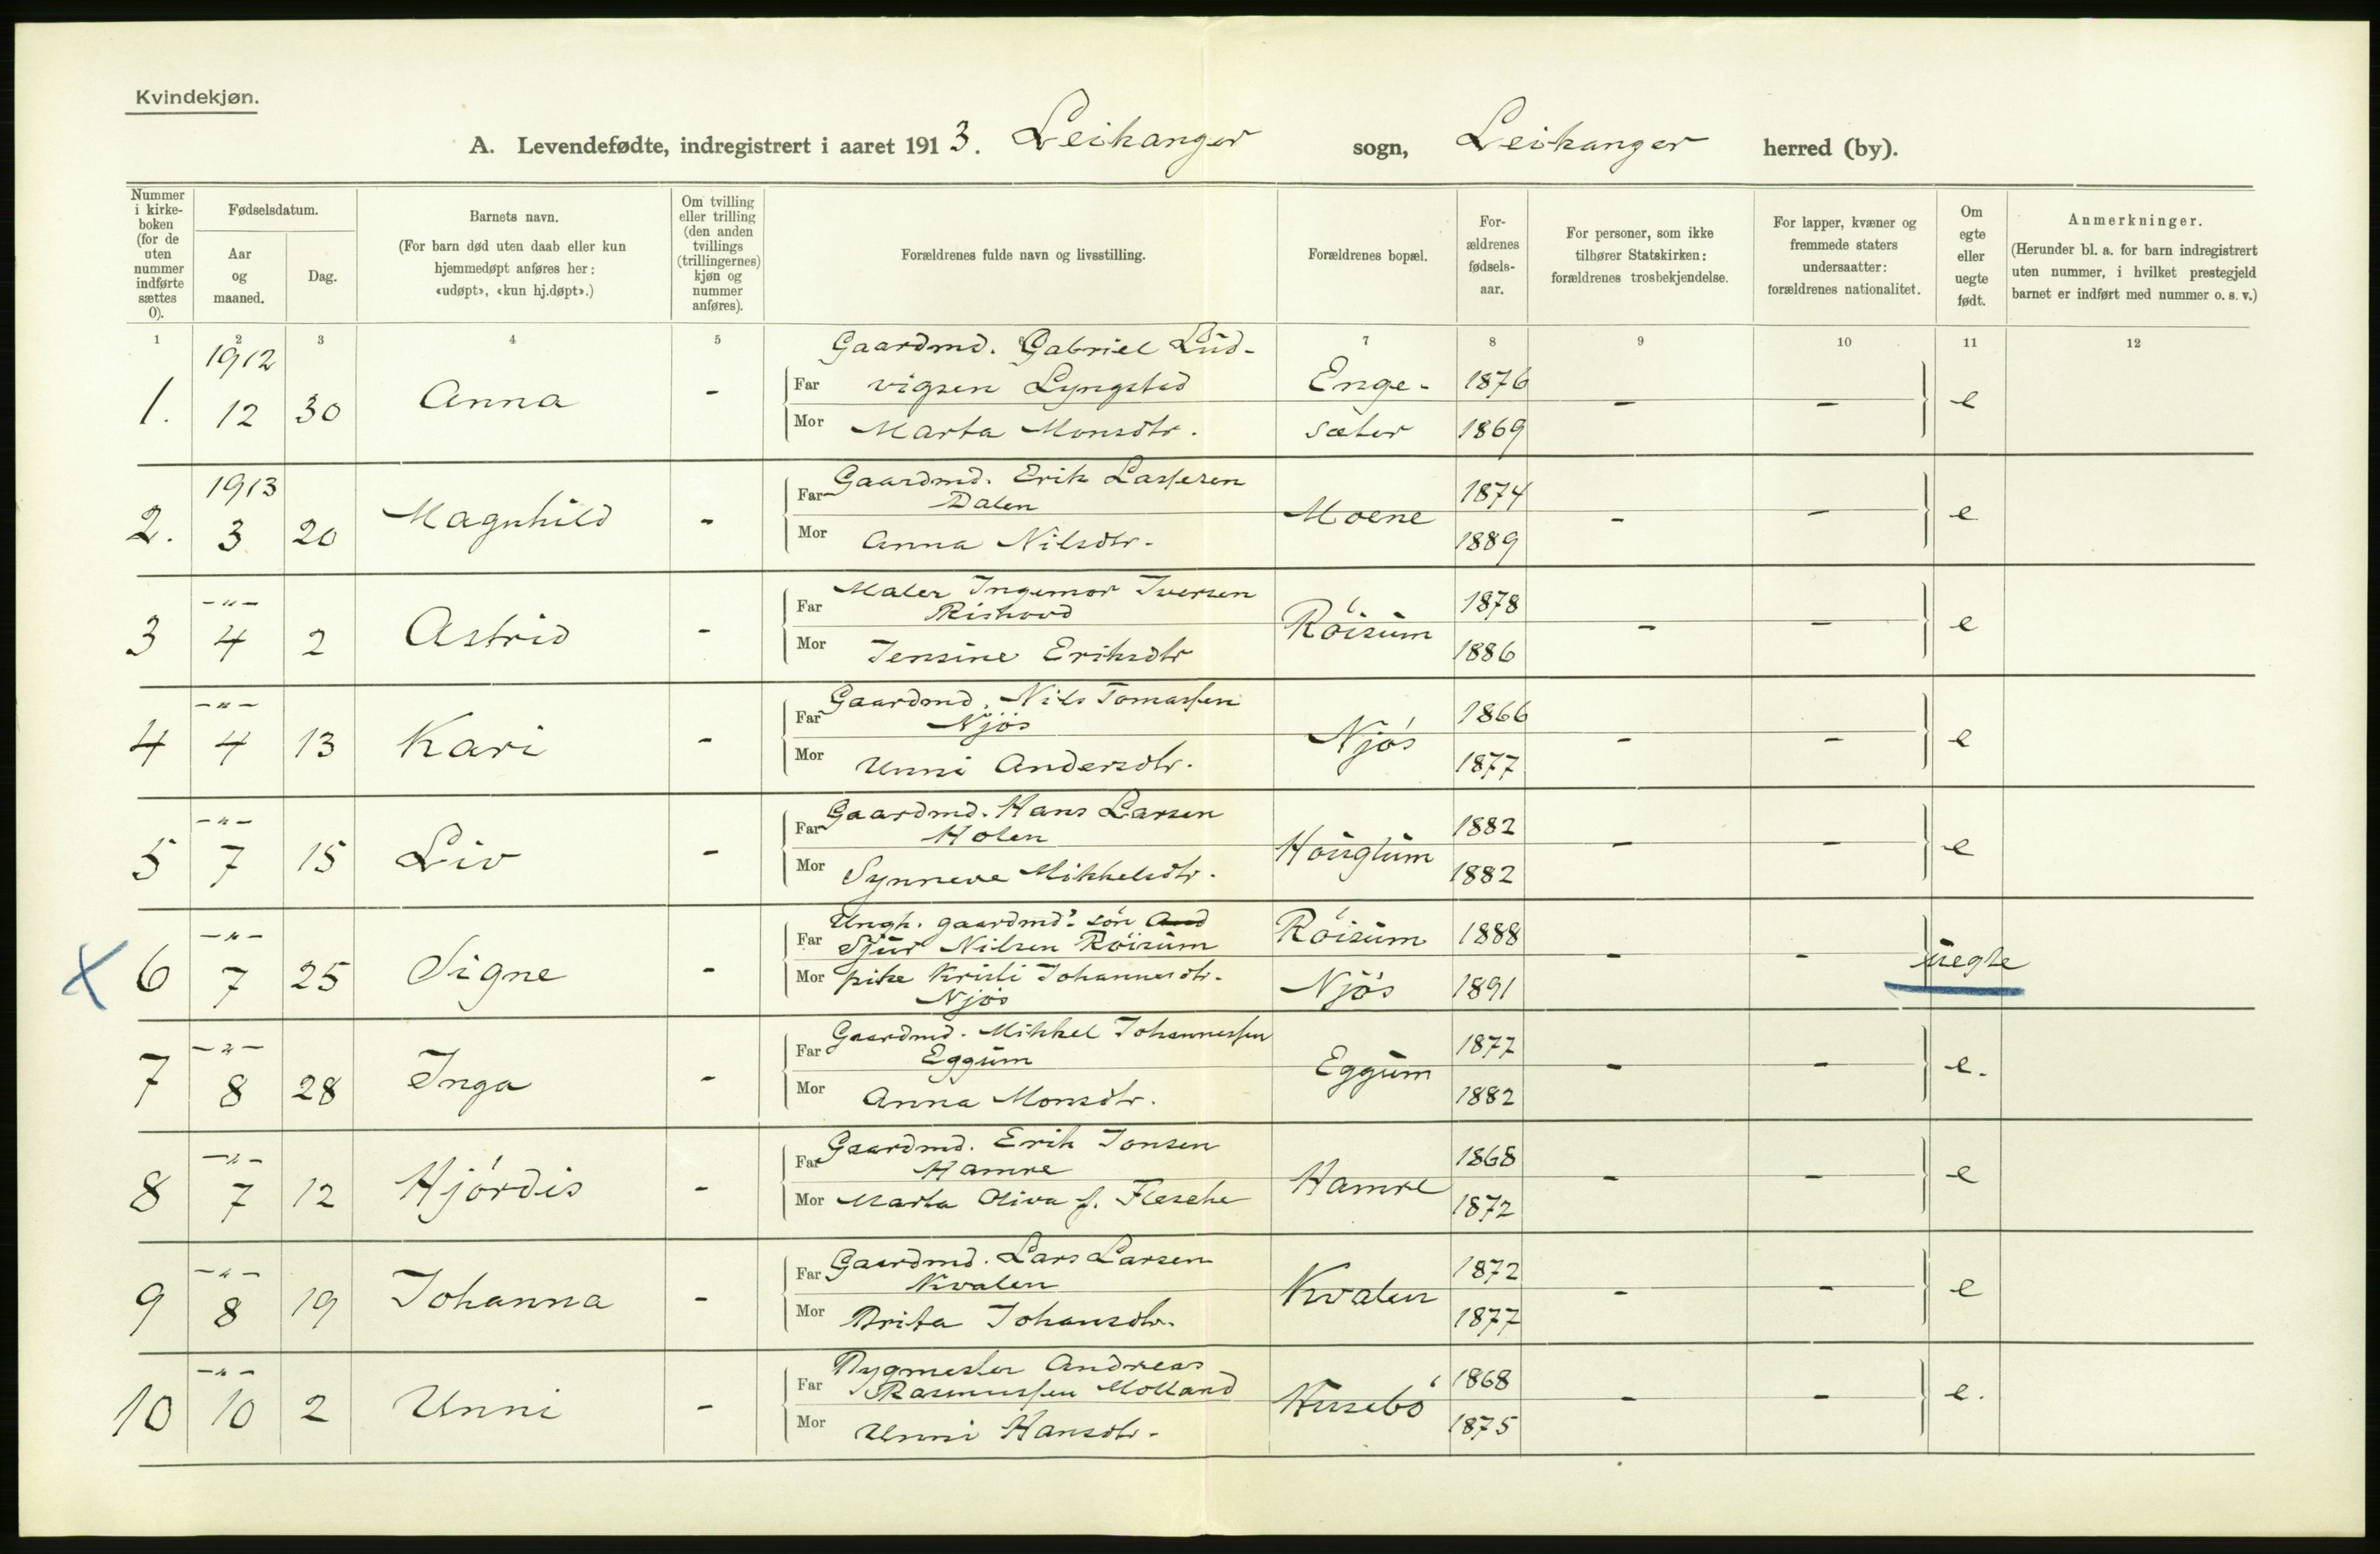 Kvindekjøn.
A. Levendefødte, indregistrert i aaret 1913. Leikanger sogn, Leikanger herred (by).
Nummer i kirke-boken (for de uten nummer indførte sættes 0).
Fødselsdatum.
Aar og maaned.
Dag.
Barnets navn.
(For barn død uten daab eller kun hjemmedøpt anføres her: «udøpt», «kun hj.døpt».)
Om tvilling eller trilling (den anden tvillings (trillingernes) kjøn og nummer anføres).
Forældrenes fulde navn og livsstilling.
Forældrenes bopæl.
For-ældrenes fødsels-aar.
For personer, som ikke tilhører Statskirken: forældrenes trosbekjendelse.
For lapper, kvæner og fremmede staters undersaatter: forældrenes nationalitet.
Om egte eller uegte født.
Anmerkninger.
(Herunder bl. a. for barn indregistrert uten nummer, i hvilket prestegjeld barnet er indført med nummer o. s. v.)
1 2 3 4 5 7 8 9 10 11 12
1. 1912 12 30 Anna - Far Gaardmd. Gabriel Lud-
vigsen Lyngstad Enge- 1876 - - e
Mor Marta Monsdtr. sæter 1869
2. 1913 3 20 Magnhild - Far Gaardmd. Erik Lassesen
Dalen Moene 1874 - - e
Mor Anna Nilsdtr. 1889
3 -"- 4 2 Astrid - Far Maler Ingemor Iversen
Röisum 1878 - - e
Mor Jensine Eriksdtr 1886
4 -"- 4 13 Kari - Far Gaardmd. Nils Tomassen
Njös Njös 1866 - - e
Mor Unni Andersdtr. 1877
5 -"- 7 15 Liv - Far Gaardmd. Hans Larsen
Holen 1882 - - e
Mor Synneve Mikkelsdtr. 1882
X 6 -"- 7 25 Signe - Far Ungk. gaardmds. sön
Sjur Nilsen Röisum Röisum 1888 - - uegte
Mor pike Kristi Johannesdtr.
Njös Njös 1891
7 -"- 8 28 Inga - Far Gaardmd. Mikkel Johannessen
Eggum Eggum 1877 - - e.
Mor Anna Monsdtr. 1882
8 -"- 7 12 Hjördis - Far Gaardmd. Erik Jonsen
Hamre Hamre 1868 - - e
Mor Marta Oliva f. Flesche 1872
9 -"- 8 19 Johanna - Far Gaardmd. Lars Larsen
Kvalen Kvalen 1872 - - e
Mor Brita Johansdtr. 1877
10 -"- 10 2 Unni - Far Bygmester Andreas
Rasmussen Molland Husebö 1868 - - e.
Mor Unni Hansdtr. 1875